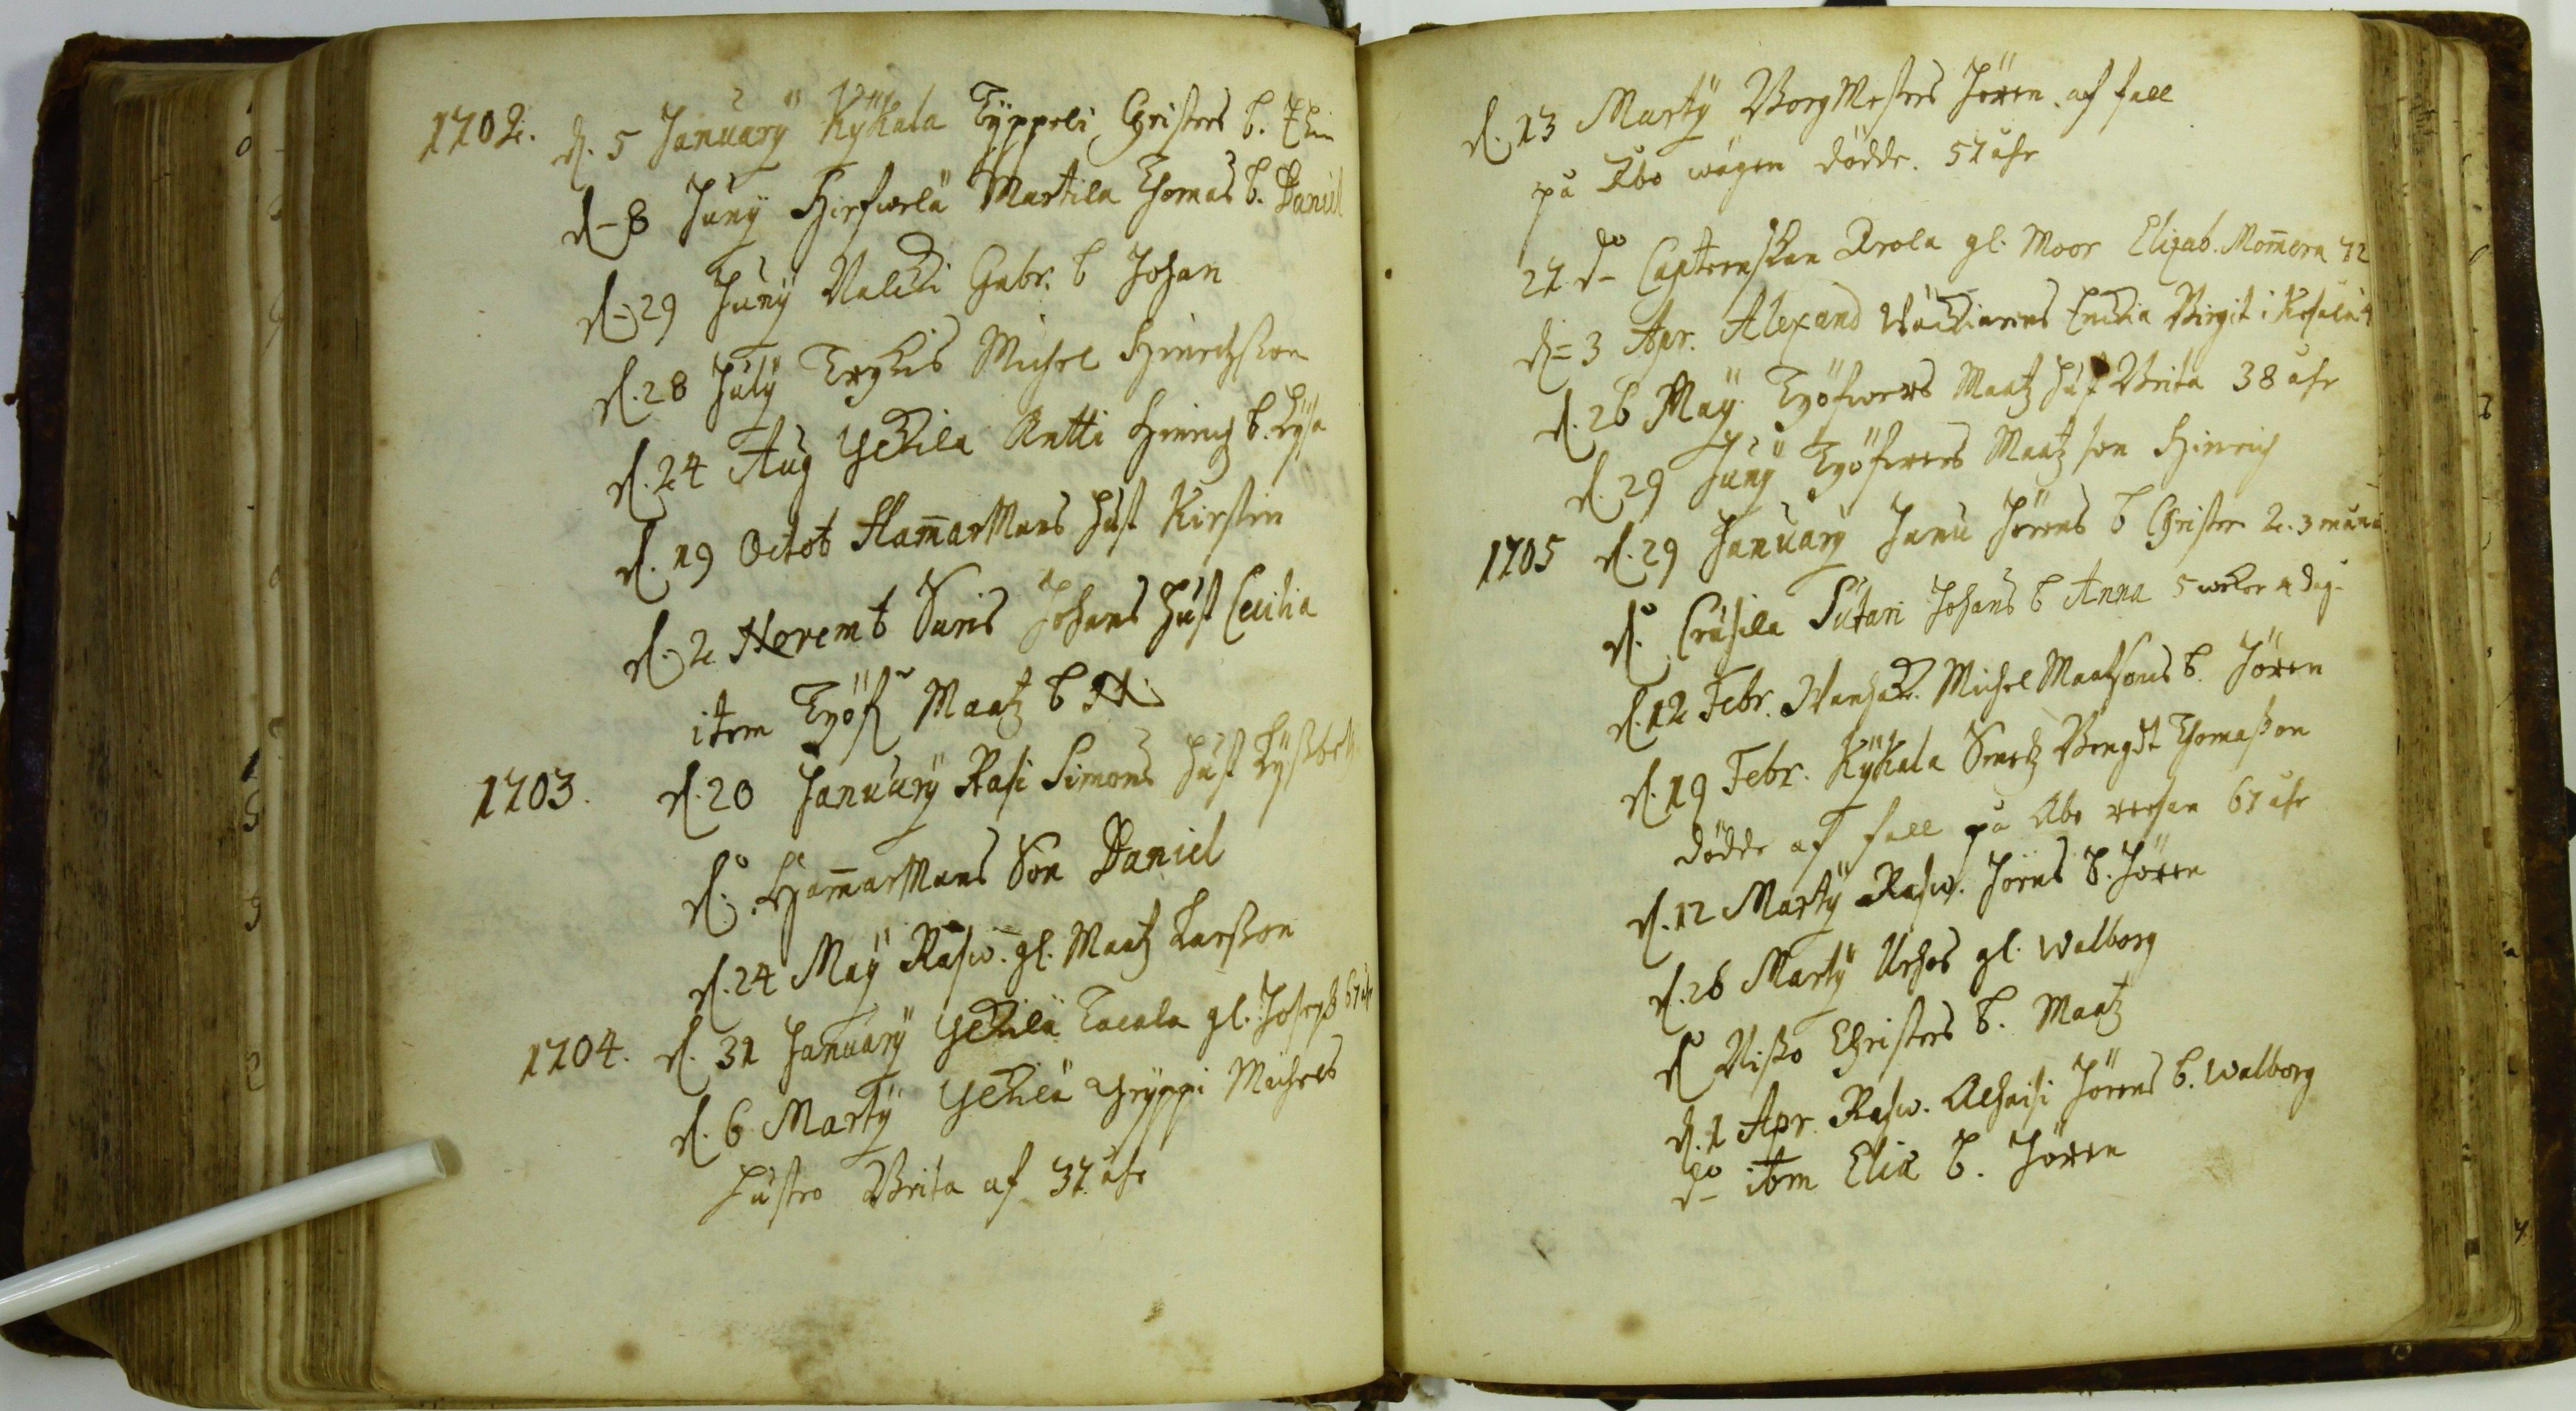 1702. d. 5 Januarÿ Kÿkala Tÿppeli Christers b. Elin
d. 8 Junÿ Hirfwelä Martila Thomas b. Daniel
d. 29 Junÿ Nalcki Gabr. b Johan
d. 28 Julÿ Michel Hinrichsson
d. 24 Aug Yckilä Antti Hinrich b. Lysa
d. 19 Octob Ham̄arMans Hust Kirstin
d. 2 Novemb Suris Johans Hust Cecilia
item Työf Maatz b N
1703. d. 20 Januarÿ Rasi Simons Hust Lÿsbeth
do. Ham̄arMans Son Daniel
d. 24 Maÿ Rasw. gl. Maatz Larsson
1704. d. 31 Januarÿ Yckilä gl. Joseph 67 åhr
d. 6 Martÿ Yckilä Michels
Hustro Brita af 37 åhr
d. 13 Martÿ BorgMesters Jören af fall
på Åbo wägen dödde. 57 åhr
27 do Capteinskan gl. Moor Elizab. Mom̄ern 72
d. 3 Apr. Alexand Enckia Birgit i
d. 26 Maÿ. Työfwers Maatz Hust Brita 38 åhr
d. 29 Junÿ Työfwers Maatz son Hinrich
1705 d. 29 Januarÿ Junu Jörens b Christer 2. 3 måna
do. Crusila Sutari Johans b Anna 5 weker 4 dag.
d. 12 Febr. Michel Maatsons b. Jören
d. 19 Febr. Kÿkala Bengdt Thomasson
dödde af fall på Åbo resan 67 åhr
d. 12 Martÿ Rasw. Jörens b. Jören
d. 26 Martÿ Uhos gl. Walborg
do Nisso Christers b. Maatz
d. 1 Apr. Rasw. Alhaisi Jörens b. Walborg
do item Elia b. Jören